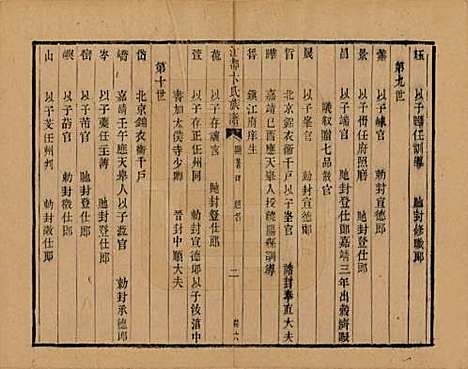 鈺　以子瞳任訓導　馳封修職郎
第九世
以子官　勅封宣德郎
景　以子任府照磨　馳封登仕郎
昌　以子官　馳封登仕郎嘉靖三年出穀濟賑
議敘贈七品散官
晟　以子峯官　勅封宣德郎
北京錦衣衞千戶以子峯官　誥封奉直大夫
曄　嘉靖己酉應天舉人授縣訓導
鎮江府庠生
江都卞氏族譜
二
以子存禮官　馳封登仕郎
萱　以子存正任州同　勅封宣德郎以子汝濬中
書加太僕寺少卿　晉封中順大夫
第十世
岱　北京錦衣衞千戶
嘉靖壬午應天舉人以子官　勅封承德郎
岑　以子任主簿　馳封登仕郎
以子苗官　勅封登仕郎
以子官　馳封徵仕郎
山　以子芠任州判　勅封徵仕郎